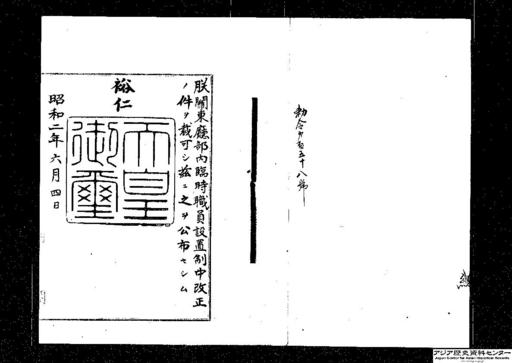 勅令第百五十八号
朕關東廳部内臨時職員設置制中改正
ノ件ヲ裁可シ茲ニ之ヲ公布セシム
裕仁
天皇御璽
昭和二年六月四日
アジア歴史資料センター
Japan Center for Asian Historical Records